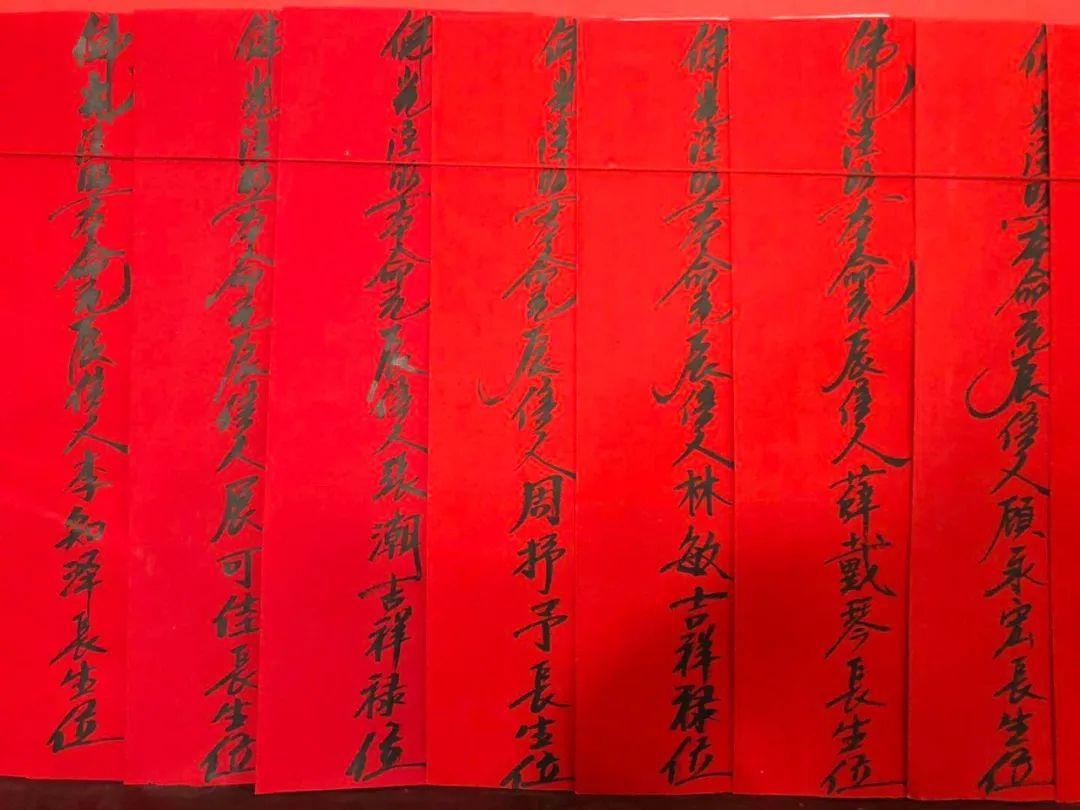 佛光注照本命元辰信人顾永宏長生位
佛光注照本命元辰信人薛戴琴長生位
佛光注照本命元辰信人林敏吉祥禄位
佛光注照本命元辰信人周抒予長生位
佛光注照本命元辰信人张潮吉祥禄位
佛光注照本命元辰信人展可佳長生位
佛光注照本命元辰信人李知泽長生位